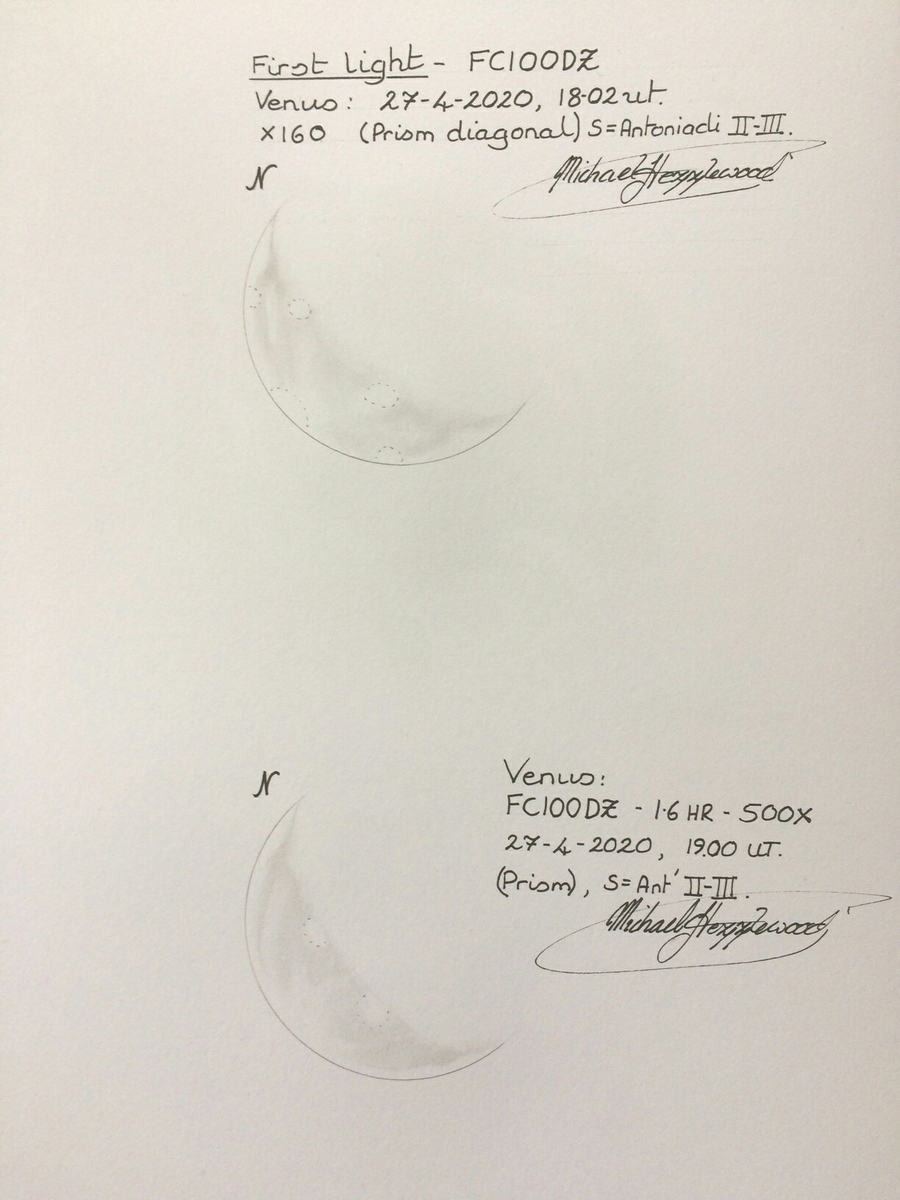 First Light - FC100DZ
Venus: 27-4-2020, 18·02 ut.
×160 (Prism diagonal) S=Antoniadi II-III.
Michael Hezzlewood
N
N
Venus:
FC100DZ - 1·6 HR - 500X
27-4-2020, 19.00 UT.
(Prism), S=Ant' II-III.
Michael Hezzlewood